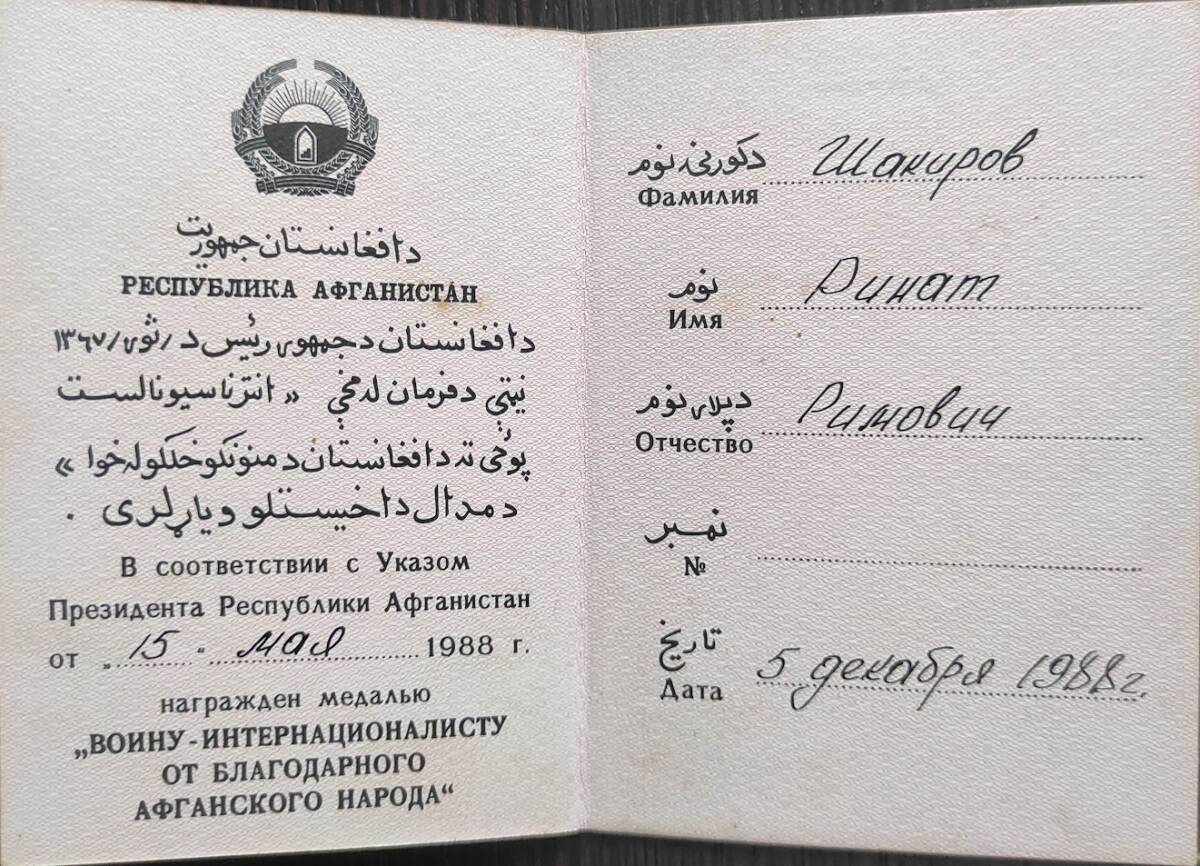 دافغانستان جمهوریت
РЕСПУБЛИКА АФГАНИСТАН
دافغانستان دجمهوری رئیس د / ثور / ۱۳۶۷
نیټې دفرمان له مخې «انترناسیونالست
پوځي ته دافغانستان دمنونکو خلکو له خوا»
دمدال داخیستلو ویاړلری .
В соответствии с Указом
Президента Республики Афганистан
от „15“ мая 1988 г.
награжден медалью
„ВОИНУ-ИНТЕРНАЦИОНАЛИСТУ
ОТ БЛАГОДАРНОГО
АФГАНСКОГО НАРОДА“
دکورنۍ نوم Шакиров
Фамилия
نوم Ринат
Имя
دپلار نوم Римович
Отчество
نمبر
№
تاریخ 5 декабря 1988г.
Дата